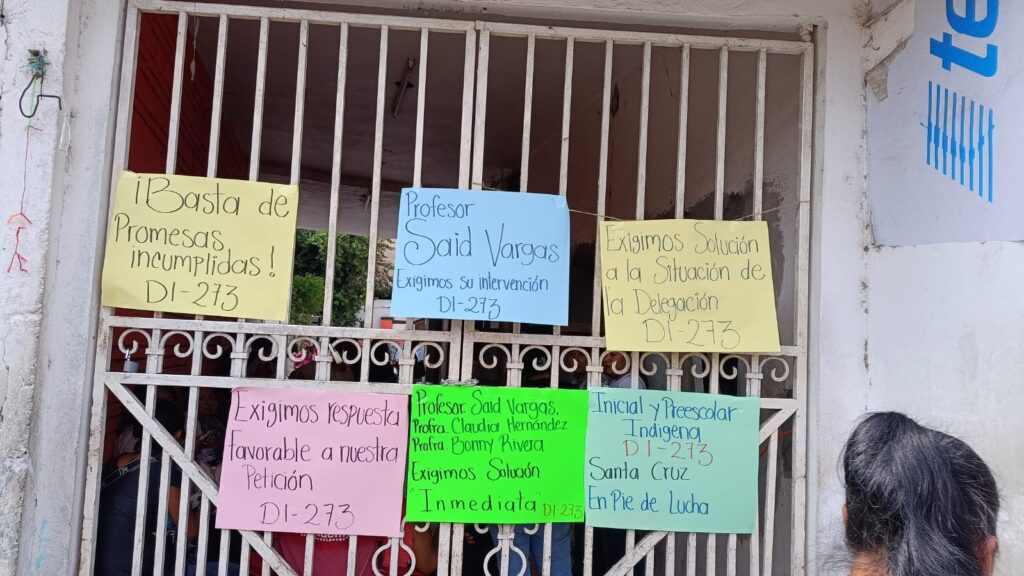 ¡¡Basta de
Promesas
incumplidas!
DI-273
Profesor
Said Vargas
Exigimos su intervención
DI-273
Exigimos Solución
a la Situación de
la Delegación
DI-273
Exigimos respuesta
favorable a nuestra
Petición
DI-273
Profesor Said Vargas,
Profra. Claudia Hernández
Profra. Bonny Rivera
Exigimos Solución
"Inmediata" DI-273
Inicial y Preescolar
Indigena
DI-273
Santa Cruz
En Pie de Lucha
te